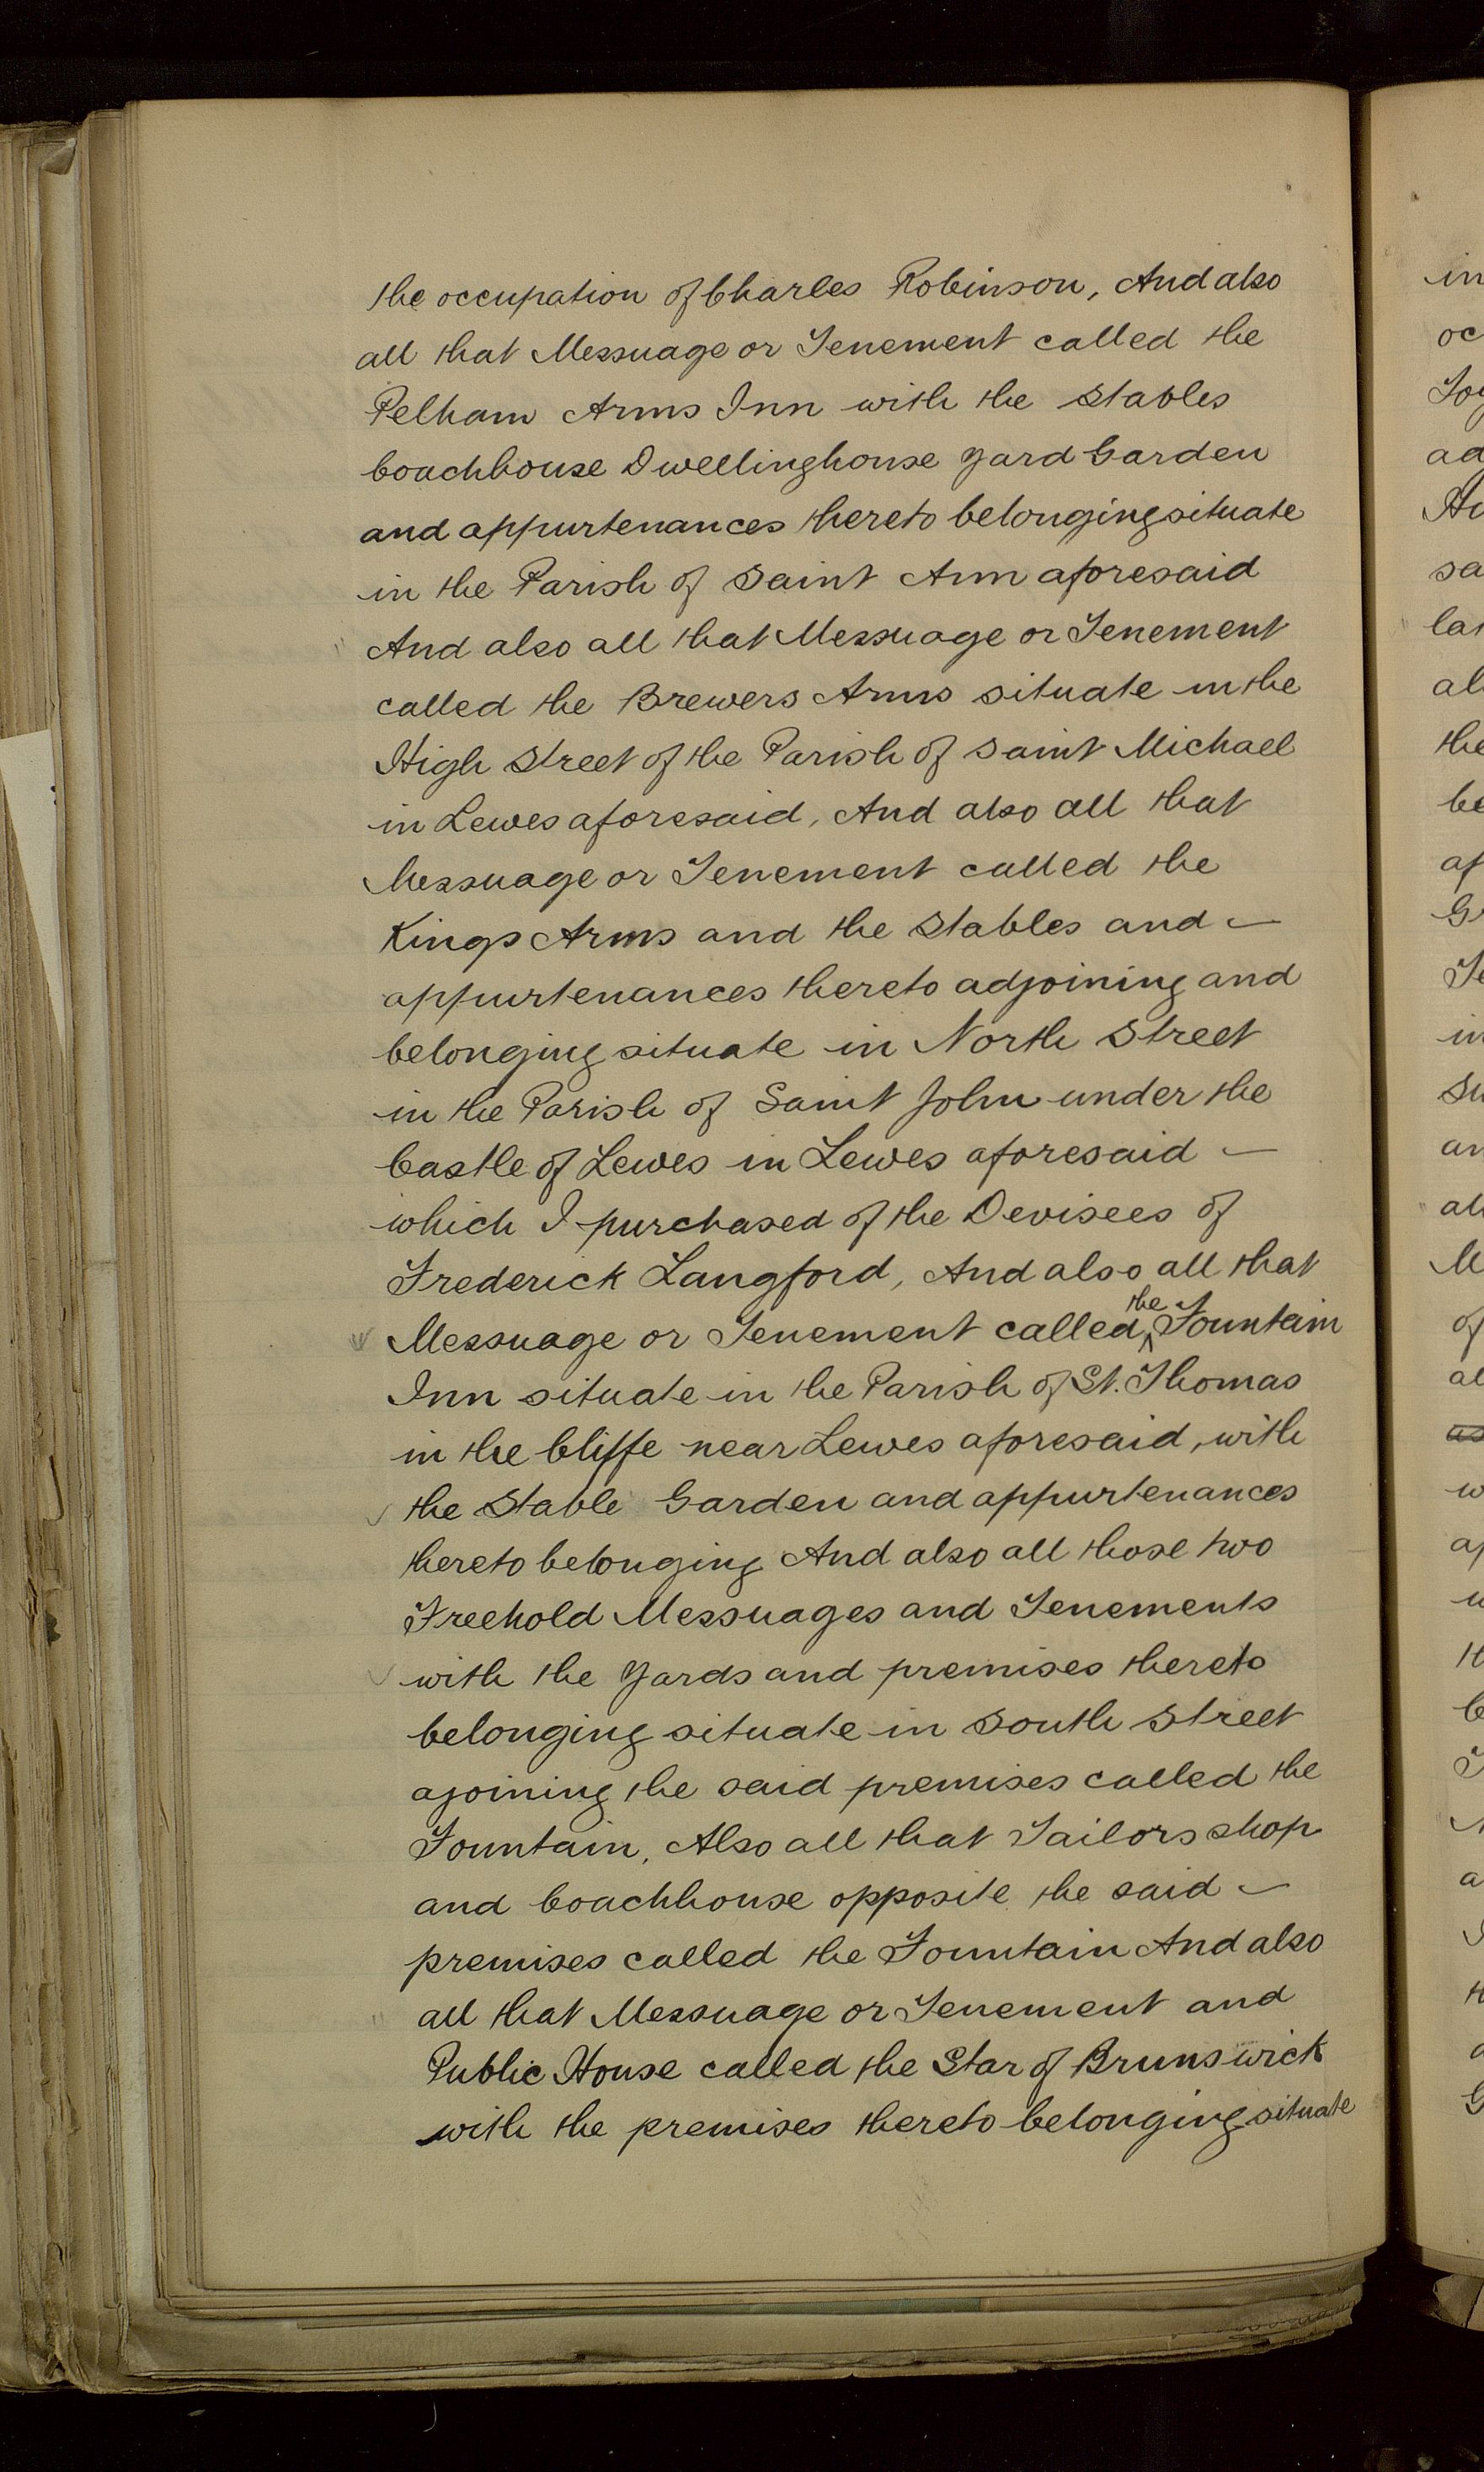 the occupation of Charles Robinson, And also
all that Messuage or Tenement called the
Pelham Arms Inn with the Stables
Coachhouse Dwellinghouse Yard Garden
and appurtenances thereto belonging situate
in the Parish of Saint Ann aforesaid
And also all that Messuage or Tenement
called the Brewers Arms situate in the
High Street of the Parish of Saint Michael
in Lewes aforesaid, And also all that
Messuage or Tenement called the
Kings Arms and the Stables and
appurtenances thereto adjoining and
belonging situate in North Street
in the Parish of Saint John under the
Castle of Lewes in Lewes aforesaid
which I purchased of the Devisees of
Frederick Langford, And also all that
Messuage or Tenement called the Fountain
Inn situate in the Parish of St. Thomas
in the Cliffe near Lewes aforesaid, with
the Stable Garden and appurtenances
thereto belonging And also all those two
Freehold Messuages and Tenements
with the Yards and premises thereto
belonging situate in South Street
ajoining the said premises called the
Fountain, Also all that Tailors shop
and Coachhouse opposite the said
premises called the Fountain And also
all that Messuage or Tenement and
Public House called the Star of Brunswick
with the premises thereto belonging situate